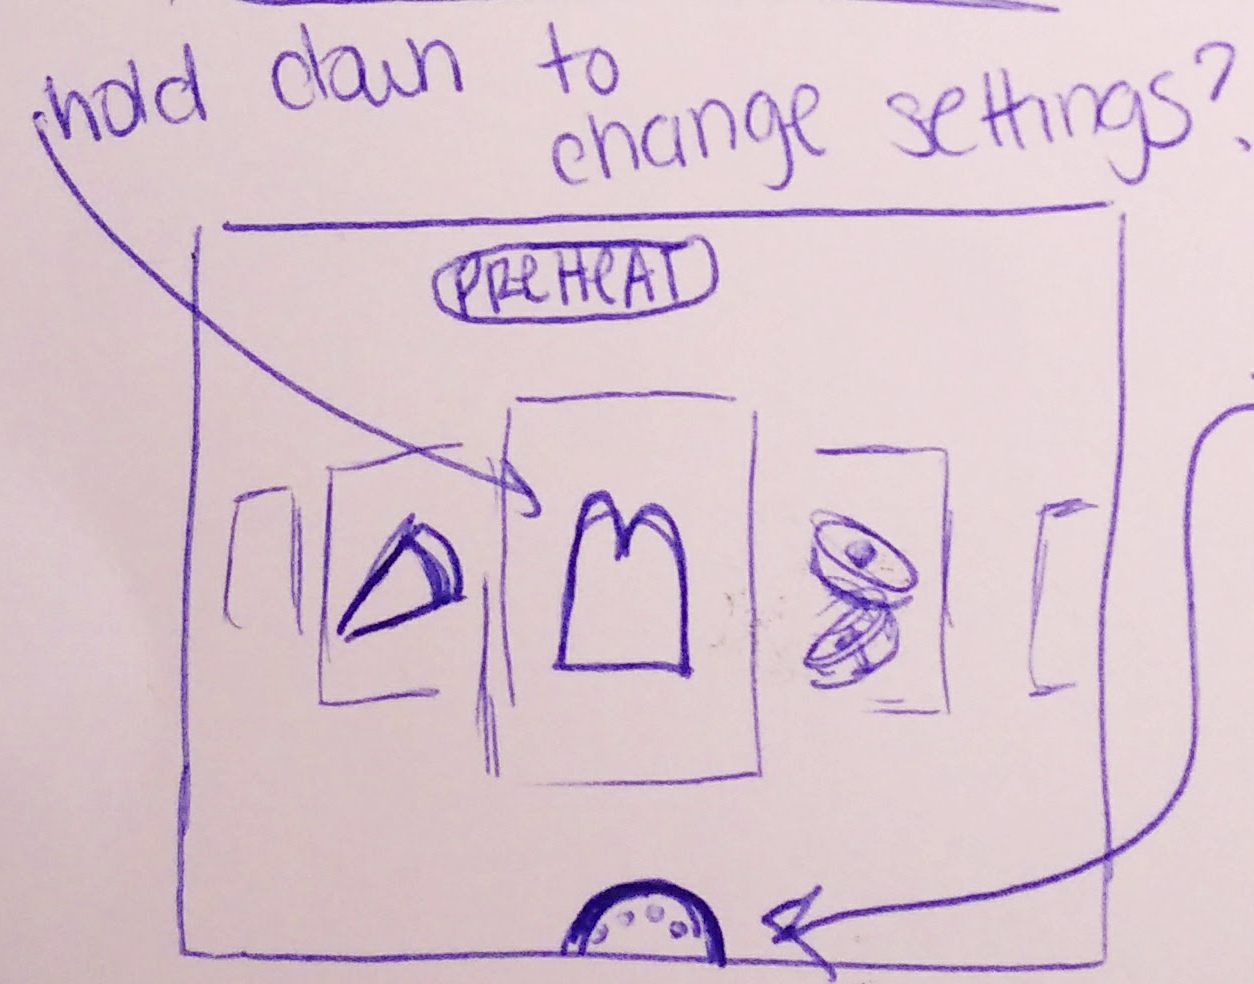 hold down to
change settings?
PReHeAT